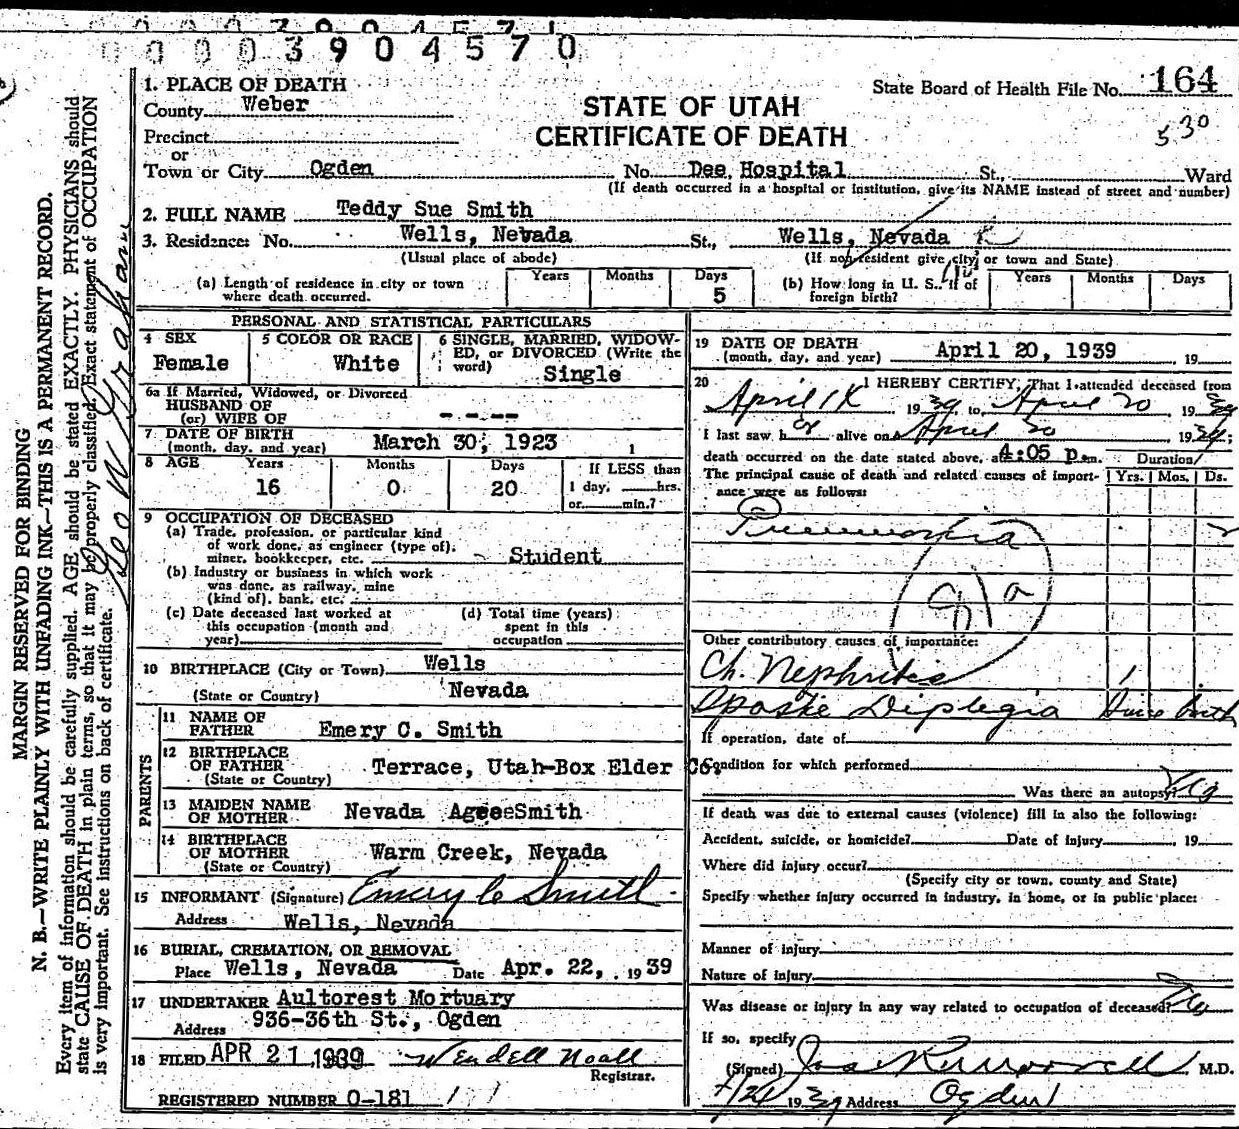 0 0 0 3 9 0 4 5 7 0
1. PLACE OF DEATH
State Board of Health File No. 164
County Weber
STATE OF UTAH
CERTIFICATE OF DEATH
530
Precinct
or
Town or City Ogden No. Dee Hospital St., Ward
(If death occurred in a hospital or institution, give its NAME instead of street and number)
2. FULL NAME Teddy Sue Smith
3. Residence: No. Wells, Nevada St., Wells, Nevada
(Usual place of abode) (If non-resident give city or town and State)
(a) Length of residence in city or town where death occurred. Years Months Days 5
(b) How long in U. S., if of foreign birth? Years Months Days
PERSONAL AND STATISTICAL PARTICULARS
4 SEX Female
5 COLOR OR RACE White
6 SINGLE, MARRIED, WIDOW-
ED, or DIVORCED (Write the
word) Single
6a If Married, Widowed, or Divorced
HUSBAND OF
(or) WIFE OF - - - -
7 DATE OF BIRTH
(month, day, and year) March 30, 1923
8 AGE Years 16 Months 0 Days 20
If LESS than
1 day, hrs.
or min.?
9 OCCUPATION OF DECEASED
(a) Trade, profession, or particular kind
of work done, as engineer (type of),
miner, bookkeeper, etc. - Student
(b) Industry or business in which work
was done, as railway, mine
(kind of), bank, etc.
(c) Date deceased last worked at
this occupation (month and
year)
(d) Total time (years)
spent in this
occupation
10 BIRTHPLACE (City or Town) Wells
(State or Country) Nevada
PARENTS
11 NAME OF
FATHER Emery C. Smith
12 BIRTHPLACE
OF FATHER
(State or Country) Terrace, Utah-Box Elder Co.
13 MAIDEN NAME
OF MOTHER Nevada Smith
14 BIRTHPLACE
OF MOTHER
(State or Country) Warm Creek, Nevada
15 INFORMANT (Signature) Emery C Smith
Address Wells, Nevada
16 BURIAL, CREMATION, OR REMOVAL
Place Wells, Nevada Date Apr. 22, 1939
17 UNDERTAKER Aultorest Mortuary
Address 936-36th St., Ogden
18 FILED APR 21 1939 Wendell Noall
Registrar.
REGISTERED NUMBER 0-181
19 DATE OF DEATH
(month, day, and year) April 20, 1939 19
20 I HEREBY CERTIFY, That I attended deceased from
April 1939, to April 20, 1939
I last saw her alive on April 20 1939;
death occurred on the date stated above, at 4:05 p.m. Duration
The principal cause of death and related causes of import-
ance were as follows: Yrs. Mos. Ds.
Pneumonia 2
Other contributory causes of importance:
Ch. Nephritis 1
Spastic Diplegia Since Birth
If operation, date of
Condition for which performed
Was there an autopsy? No
If death was due to external causes (violence) fill in also the following:
Accident, suicide, or homicide? Date of injury 19
Where did injury occur?
(Specify city or town, county and State)
Specify whether injury occurred in industry, in home, or in public place:
Manner of injury
Nature of injury
Was disease or injury in any way related to occupation of deceased? No
If so, specify
(Signed) M.D.
1939 Address Ogden
MARGIN RESERVED FOR BINDING
N. B.—WRITE PLAINLY WITH UNFADING INK—THIS IS A PERMANENT RECORD.
Every item of information should be carefully supplied. AGE should be stated EXACTLY. PHYSICIANS should
state CAUSE OF DEATH in plain terms, so that it may be properly classified. Exact statement of OCCUPATION
is very important. See instructions on back of certificate.